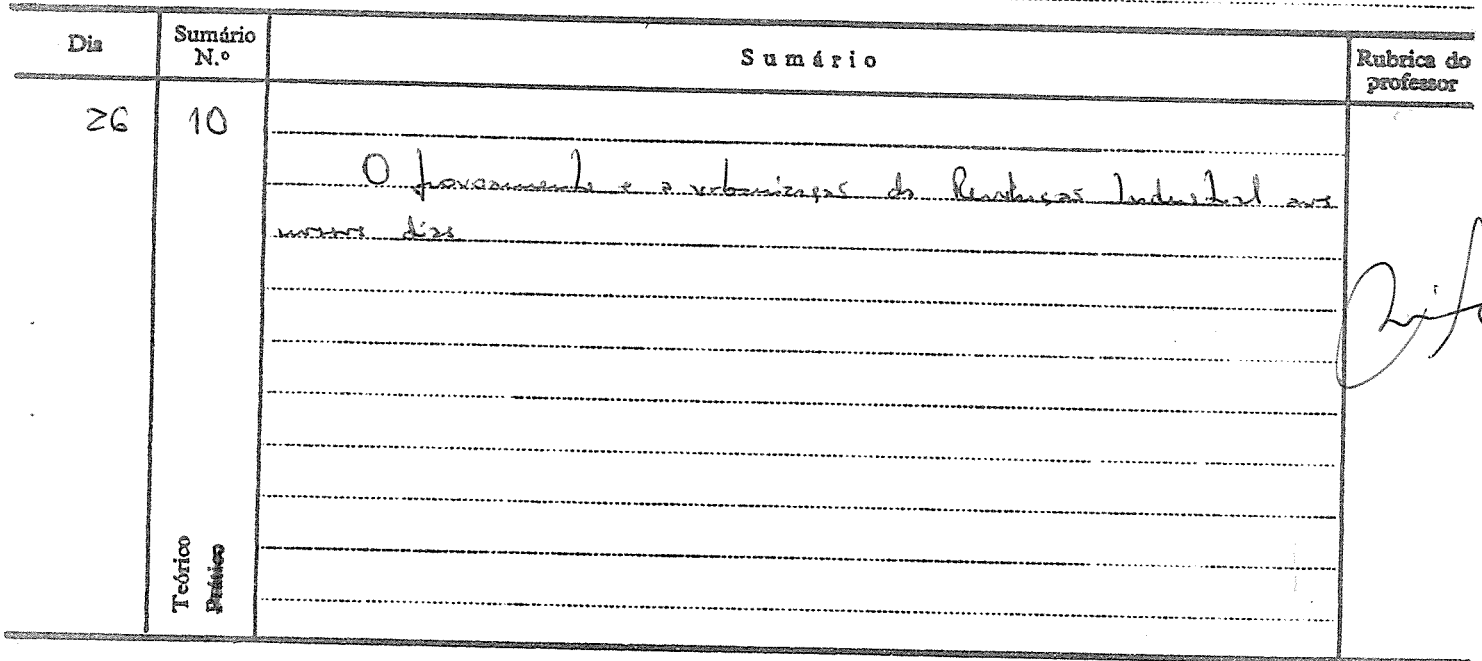 Dia
Sumário
N.º
Sumário
Rubrica do
professor
26
10
O povoamento e a urbanização da Revolução Industrial aos
nossos dias
Teórico
Prático